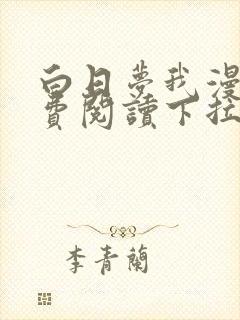 白日夢我漫
費閱讀下拉
李青蘭